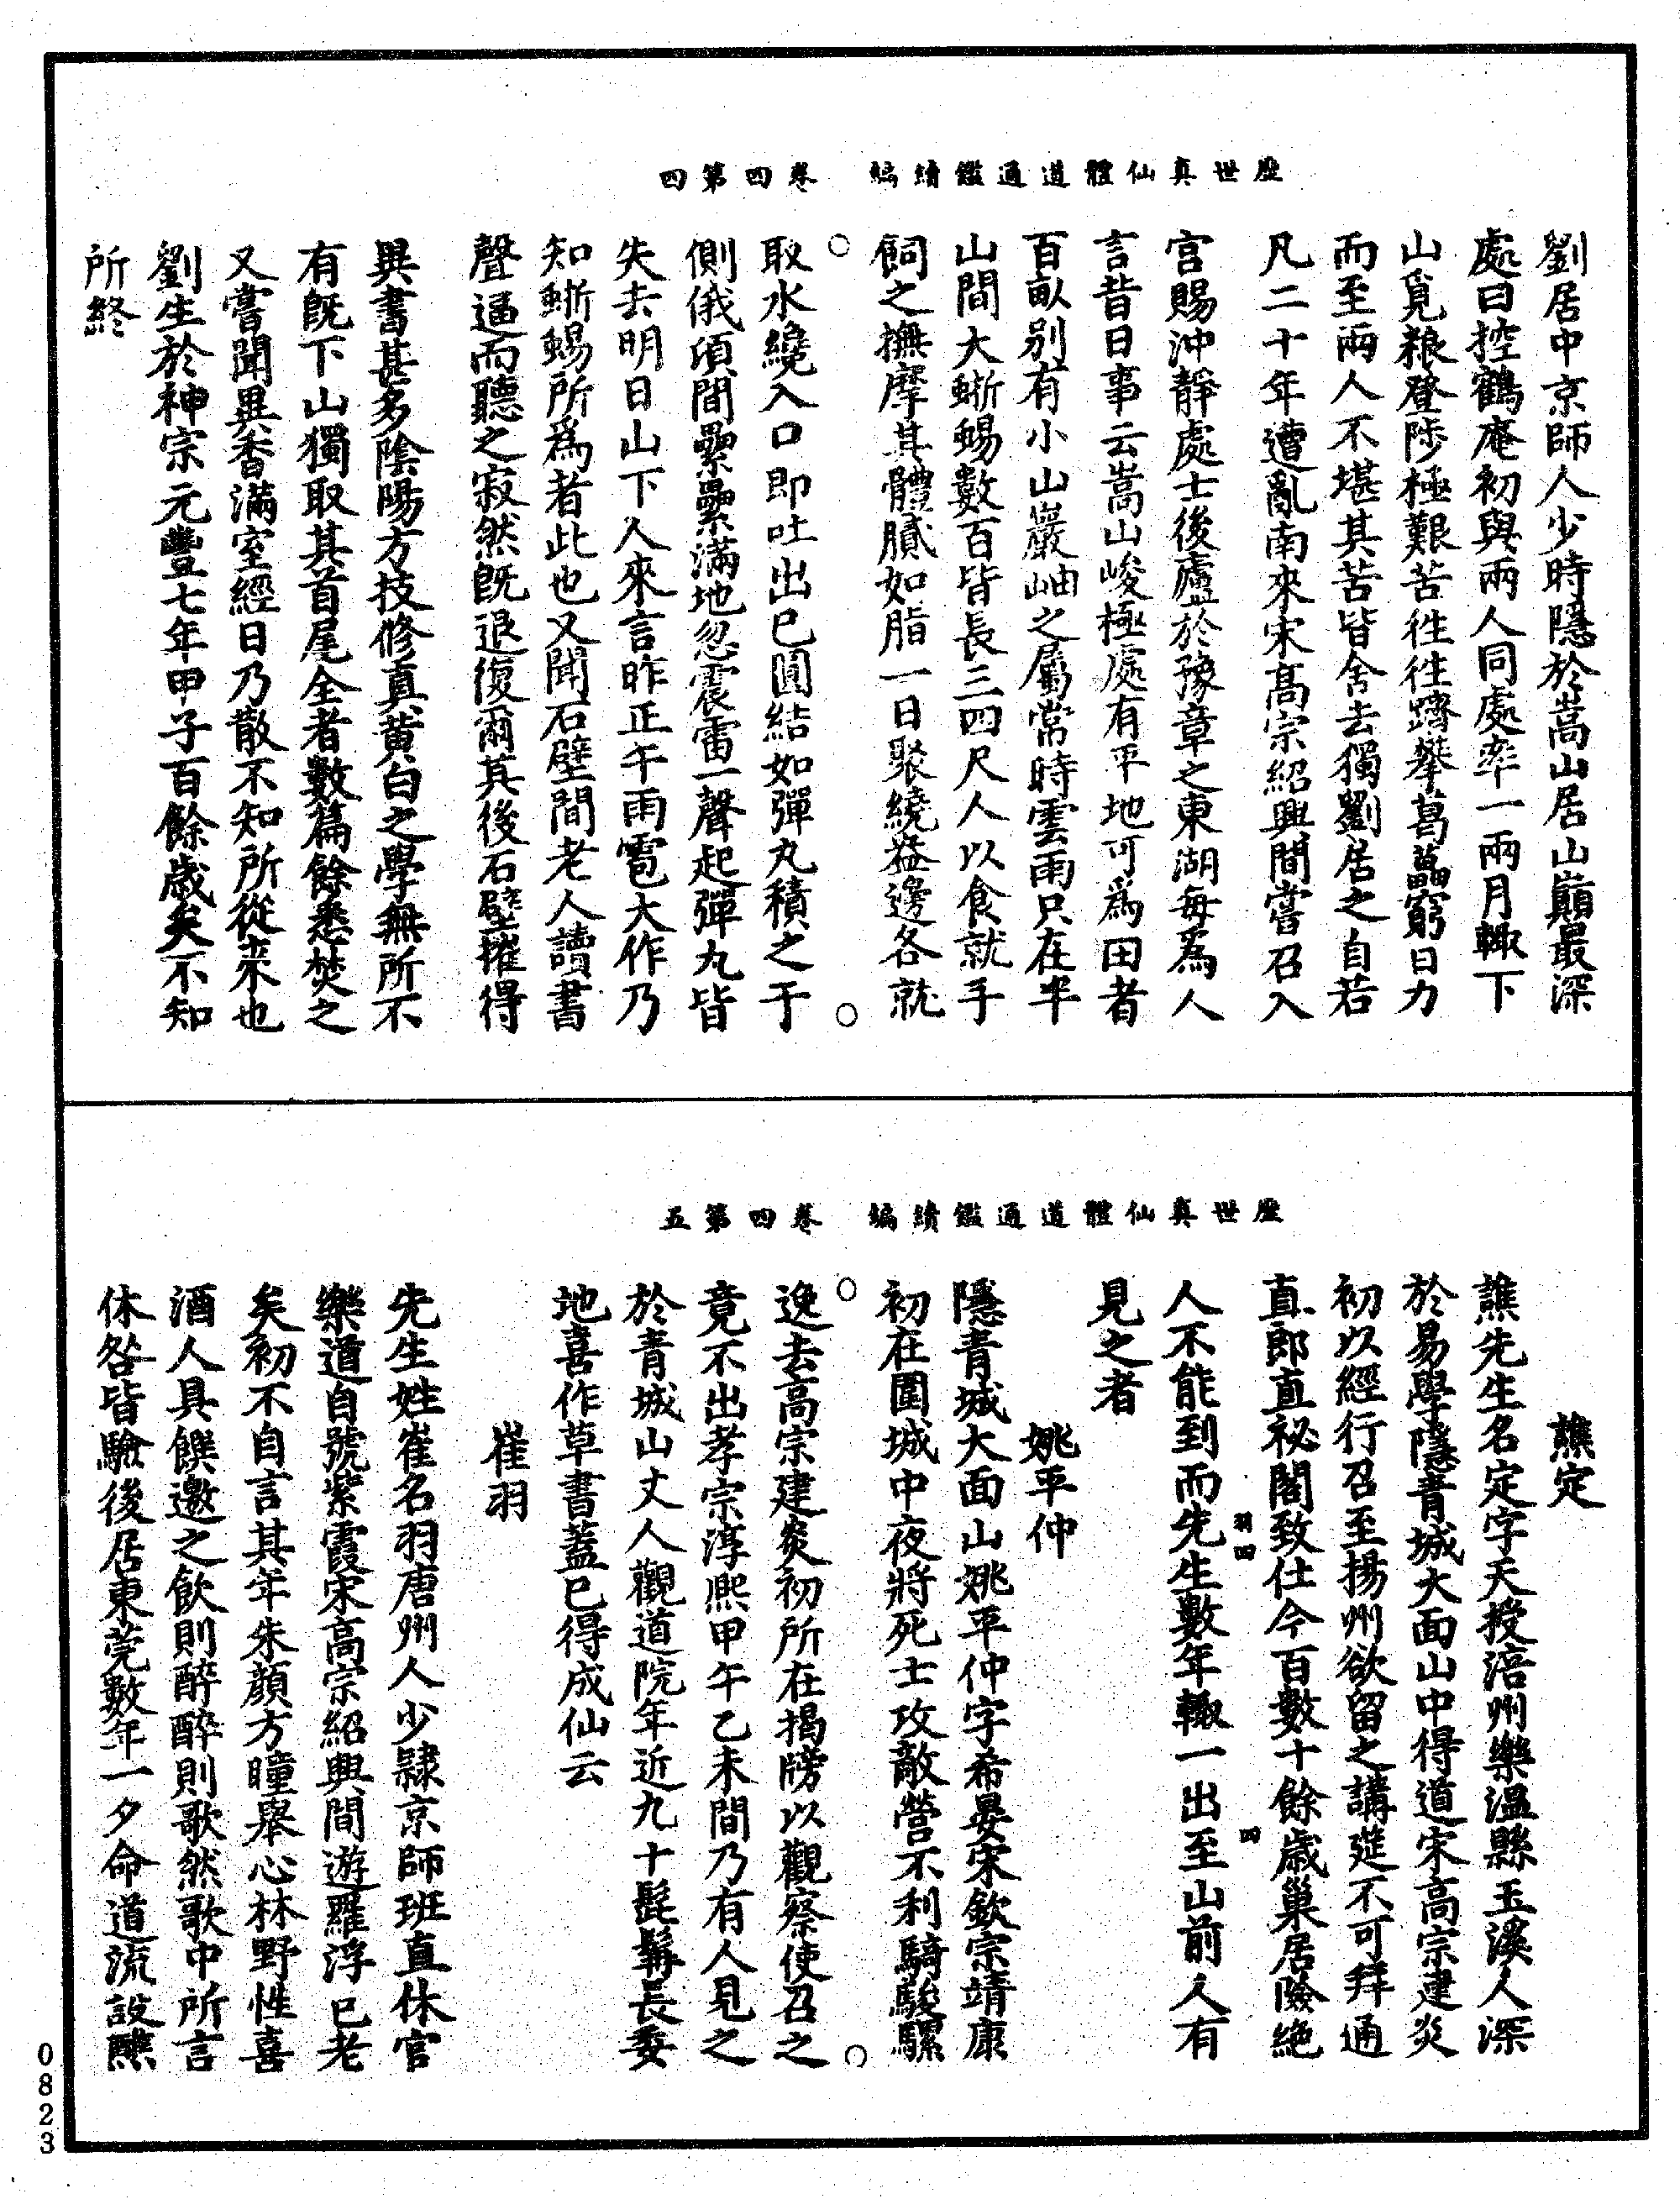 歷世真仙體道通鑑續編　卷四第四
劉居中京師人少時隱於嵩山居山巔最深
處曰控鶴庵初與兩人同處率一兩月輙下
山覓粮登陟極艱苦徃徃躋攀葛藟窮日力
而至兩人不堪其苦皆舍去獨劉居之自若
凡二十年遭亂南來宋髙宗紹興間嘗召入
宫賜沖靜處士後廬於豫章之東湖每爲人
言昔日事云嵩山峻極處有平地可爲田者
百畝别有小山巖岫之屬常時雲雨只在半
山間大蜥蜴數百皆長三四尺人以食就手
飼之撫摩其體膩如脂一日聚繞盆邊各就
取水纔入口即吐出巳圓結如彈丸積之于
側俄頃間纍纍滿地忽震雷一聲起彈丸皆
失去明日山下人來言昨正午雨雹大作乃
知蜥蜴所爲者此也又聞石壁間老人讀書
聲逼而聽之寂然旣退復爾其後石壁摧得
異書甚多陰陽方技修真黄白之學無所不
有旣下山獨取其首尾全者數篇餘悉焚之
又嘗聞異香滿室經日乃散不知所從来也
劉生於神宗元豐七年甲子百餘歳矣不知
所終
歷世真仙體道通鑑續編　卷四第五
譙定
譙先生名定字天授涪州樂温縣玉溪人深
於易學隱青城大面山中得道宋高宗建炎
初以經行召至揚州欲留之講筵不可拜通
直郎直祕閣致仕今百數十餘歳巢居險絶
人不能到而先生數年輙一出至山前人有
羽四
四
見之者
姚平仲
隱青城大面山姚平仲字希晏宋欽宗靖康
初在圍城中夜將死士攻敵營不利騎駿騾
逸去高宗建炎初所在揭牓以觀察使召之
竟不出孝宗淳熙甲午乙未間乃有人見之
於青城山丈人觀道院年近九十髭髯長委
地喜作草書蓋巳得成仙云
崔羽
先生姓崔名羽唐州人少隸京師班直休官
樂道自號紫霞宋高宗紹興間遊羅浮巳老
矣初不自言其年朱顔方瞳舉心林野性喜
酒人具饌邀之飲則醉醉則歌然歌中所言
休咎皆驗後居東莞數年一夕命道流設醮
0823